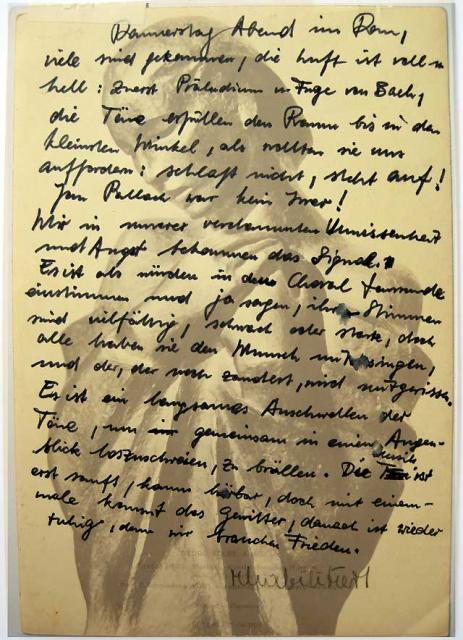 Donnerstag Abend im Dom,
viele sind gekommen, die Luft ist voll u
hell: Zuerst Präludium u Fuge von Bach,
die Töne erfüllen den Raum bis in den
kleinsten Winkel, als wollten sie uns
auffordern: schlaft nicht, steht auf!
Jan Pallach war kein Irrer!
Wir in unserer verdammten Unwissenheit
und Angst bekommen das Signal.
Es ist als würden in dem Choral tausende
einstimmen und ja sagen, ihre Stimmen
sind vielfältig, schwach oder stark, doch
alle haben sie den Wunsch mitzusingen,
und der, der noch zaudert, wird mitgerissen.
Es ist ein langsames Anschwellen der
Töne, um gemeinsam in einem Augen-
blick loszuschreien, zu brüllen. Die Musik ist
erst sanft, kaum hörbar, doch mit einem-
male kommt das Gewitter, danach ist wieder
ruhig, denn wir brauchen Frieden.